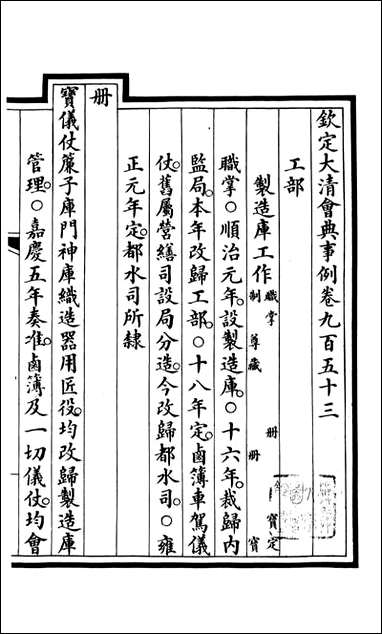 欽定大清會典事例卷九百五十三
工部
製造庫工作 職掌 冊 寶定
制 尊藏 冊 寶
職掌○順治元年設製造庫○十六年裁歸內
監局本年改歸工部○十八年定鹵簿車駕儀
仗舊屬營繕司設局分造今改歸都水司○雍
正元年定都水司所隸
冊
寶儀仗簾子庫門神庫織造器用匠役均改歸製造庫
管理○嘉慶五年奏准鹵簿及一切儀仗均會